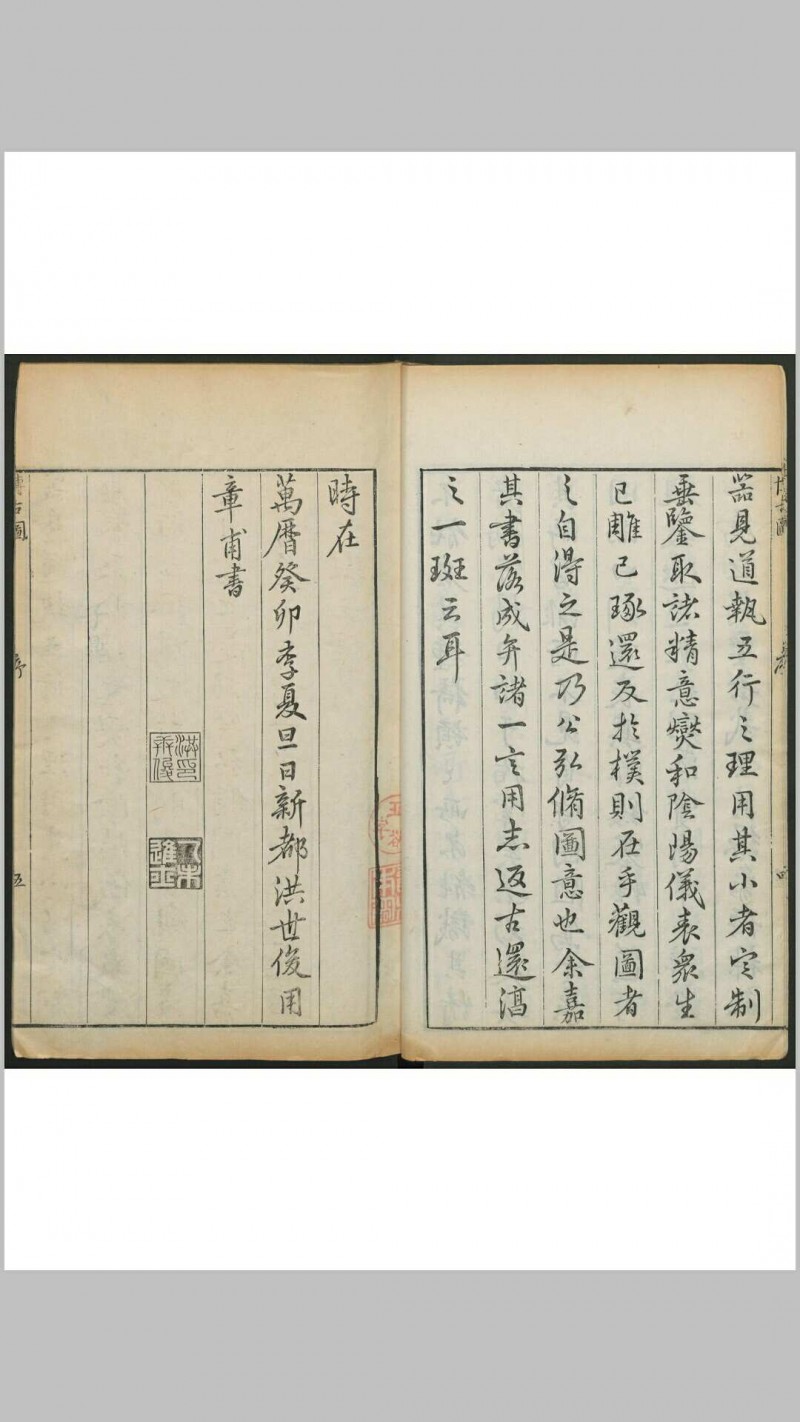 器見道執五行之理用其小者它制
垂鑒取諸精意爕和陰陽儀表衆生
已雕已琢還反於樸則在手觀圖者
之自得之是乃公弘脩圖意也余嘉
其書落成弁諸一言用志返古還淳
之一斑云耳
時在
萬曆癸卯季夏旦日新都洪世俊用
章甫書
古圖
序
五